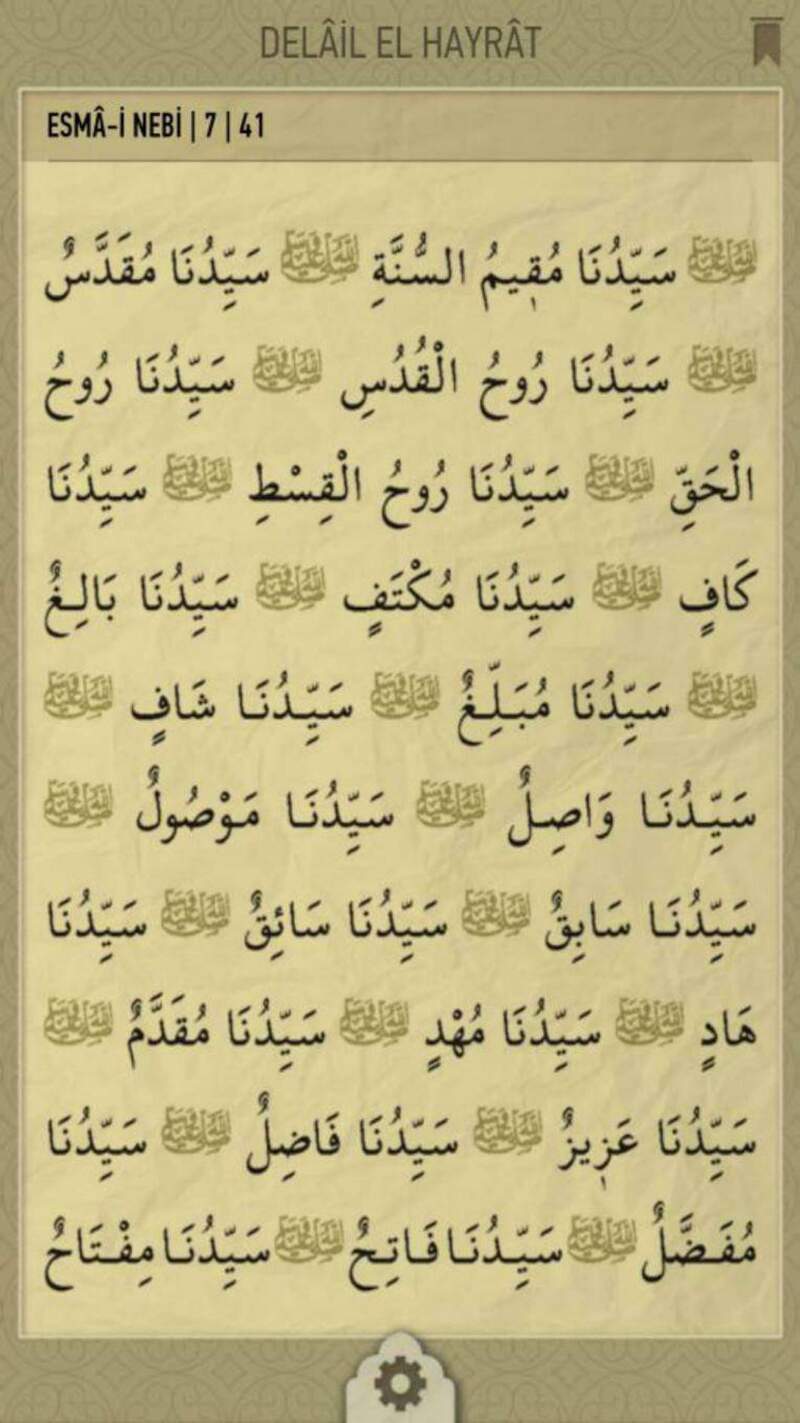 DELÂİL EL HAYRÂT
ESMÂ-İ NEBİ | 7 | 41
ﷺ سَيِّدُنَا مُقِيمُ السُّنَّةِ ﷺ سَيِّدُنَا مُقَدَّسٌ
ﷺ سَيِّدُنَا رُوحُ الْقُدُسِ ﷺ سَيِّدُنَا رُوحُ
الْحَقِّ ﷺ سَيِّدُنَا رُوحُ الْقِسْطِ ﷺ سَيِّدُنَا
كَافٍ ﷺ سَيِّدُنَا مُكْتَفٍ ﷺ سَيِّدُنَا بَالِغٌ
ﷺ سَيِّدُنَا مُبَلِّغٌ ﷺ سَيِّدُنَا شَافٍ ﷺ
سَيِّدُنَا وَاصِلٌ ﷺ سَيِّدُنَا مَوْصُولٌ ﷺ
سَيِّدُنَا سَابِقٌ ﷺ سَيِّدُنَا سَائِقٌ ﷺ سَيِّدُنَا
هَادٍ ﷺ سَيِّدُنَا مُهْدٍ ﷺ سَيِّدُنَا مُقَدَّمٌ ﷺ
سَيِّدُنَا عَزِيزٌ ﷺ سَيِّدُنَا فَاضِلٌ ﷺ سَيِّدُنَا
مُفَضَّلٌ ﷺ سَيِّدُنَا فَاتِحٌ ﷺ سَيِّدُنَا مِفْتَاحٌ